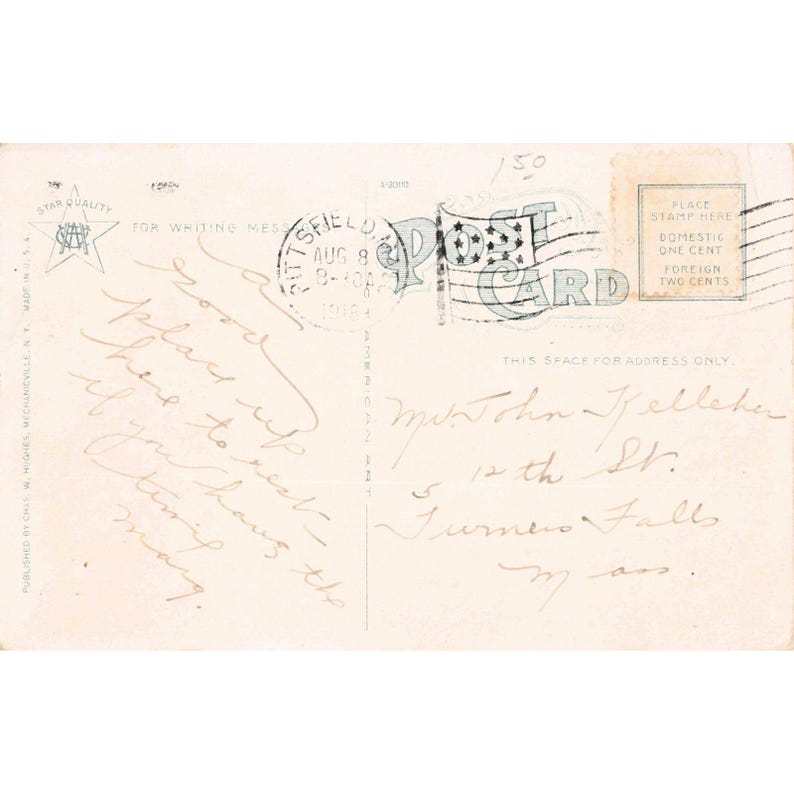 150
A-20110
STAR QUALITY
FOR WRITING MESSAGES
PITTSFIELD,
AUG 8
8-
1918
POST CARD
PLACE
STAMP HERE
DOMESTIC
ONE CENT
FOREIGN
TWO CENTS
THIS SPACE FOR ADDRESS ONLY.
A
good
place up
here to rest –
if you have the
time
Marg.
Mr. John Kelleher
5 12th St.
Turners Falls
Mass.
AMERICAN ART
PUBLISHED BY CHAS. W. HUGHES, MECHANICVILLE, N. Y. MADE IN U. S. A.